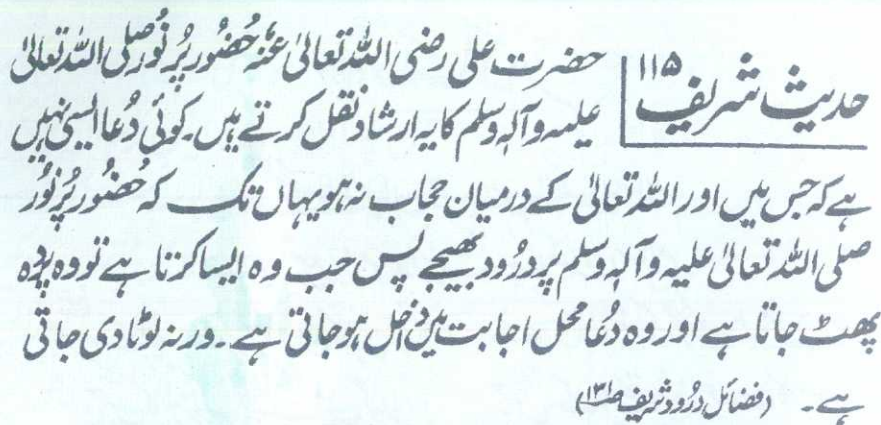 حدیث شریف ۱۱۵
حضرت علی رضی اللہ تعالیٰ عنہٗ حُضُور پُر نُور صلی اللہ تعالیٰ
علیہ وآلہٖ وسلم کا یہ ارشاد نقل کرتے ہیں۔ کوئی دُعا ایسی نہیں
ہے کہ جس میں اور اللہ تعالیٰ کے درمیان حجاب نہ ہو یہاں تک کہ حُضُور پُر نُور
صلی اللہ تعالیٰ علیہ وآلہٖ وسلم پر درُود بھیجے پس جب وہ ایسا کرتا ہے تو وہ پردہ
پھٹ جاتا ہے اور وہ دُعا محل اجابت میں داخل ہو جاتی ہے۔ ورنہ لوٹا دی جاتی
ہے۔ (فضائل درُود شریف صـ۱۳۱)